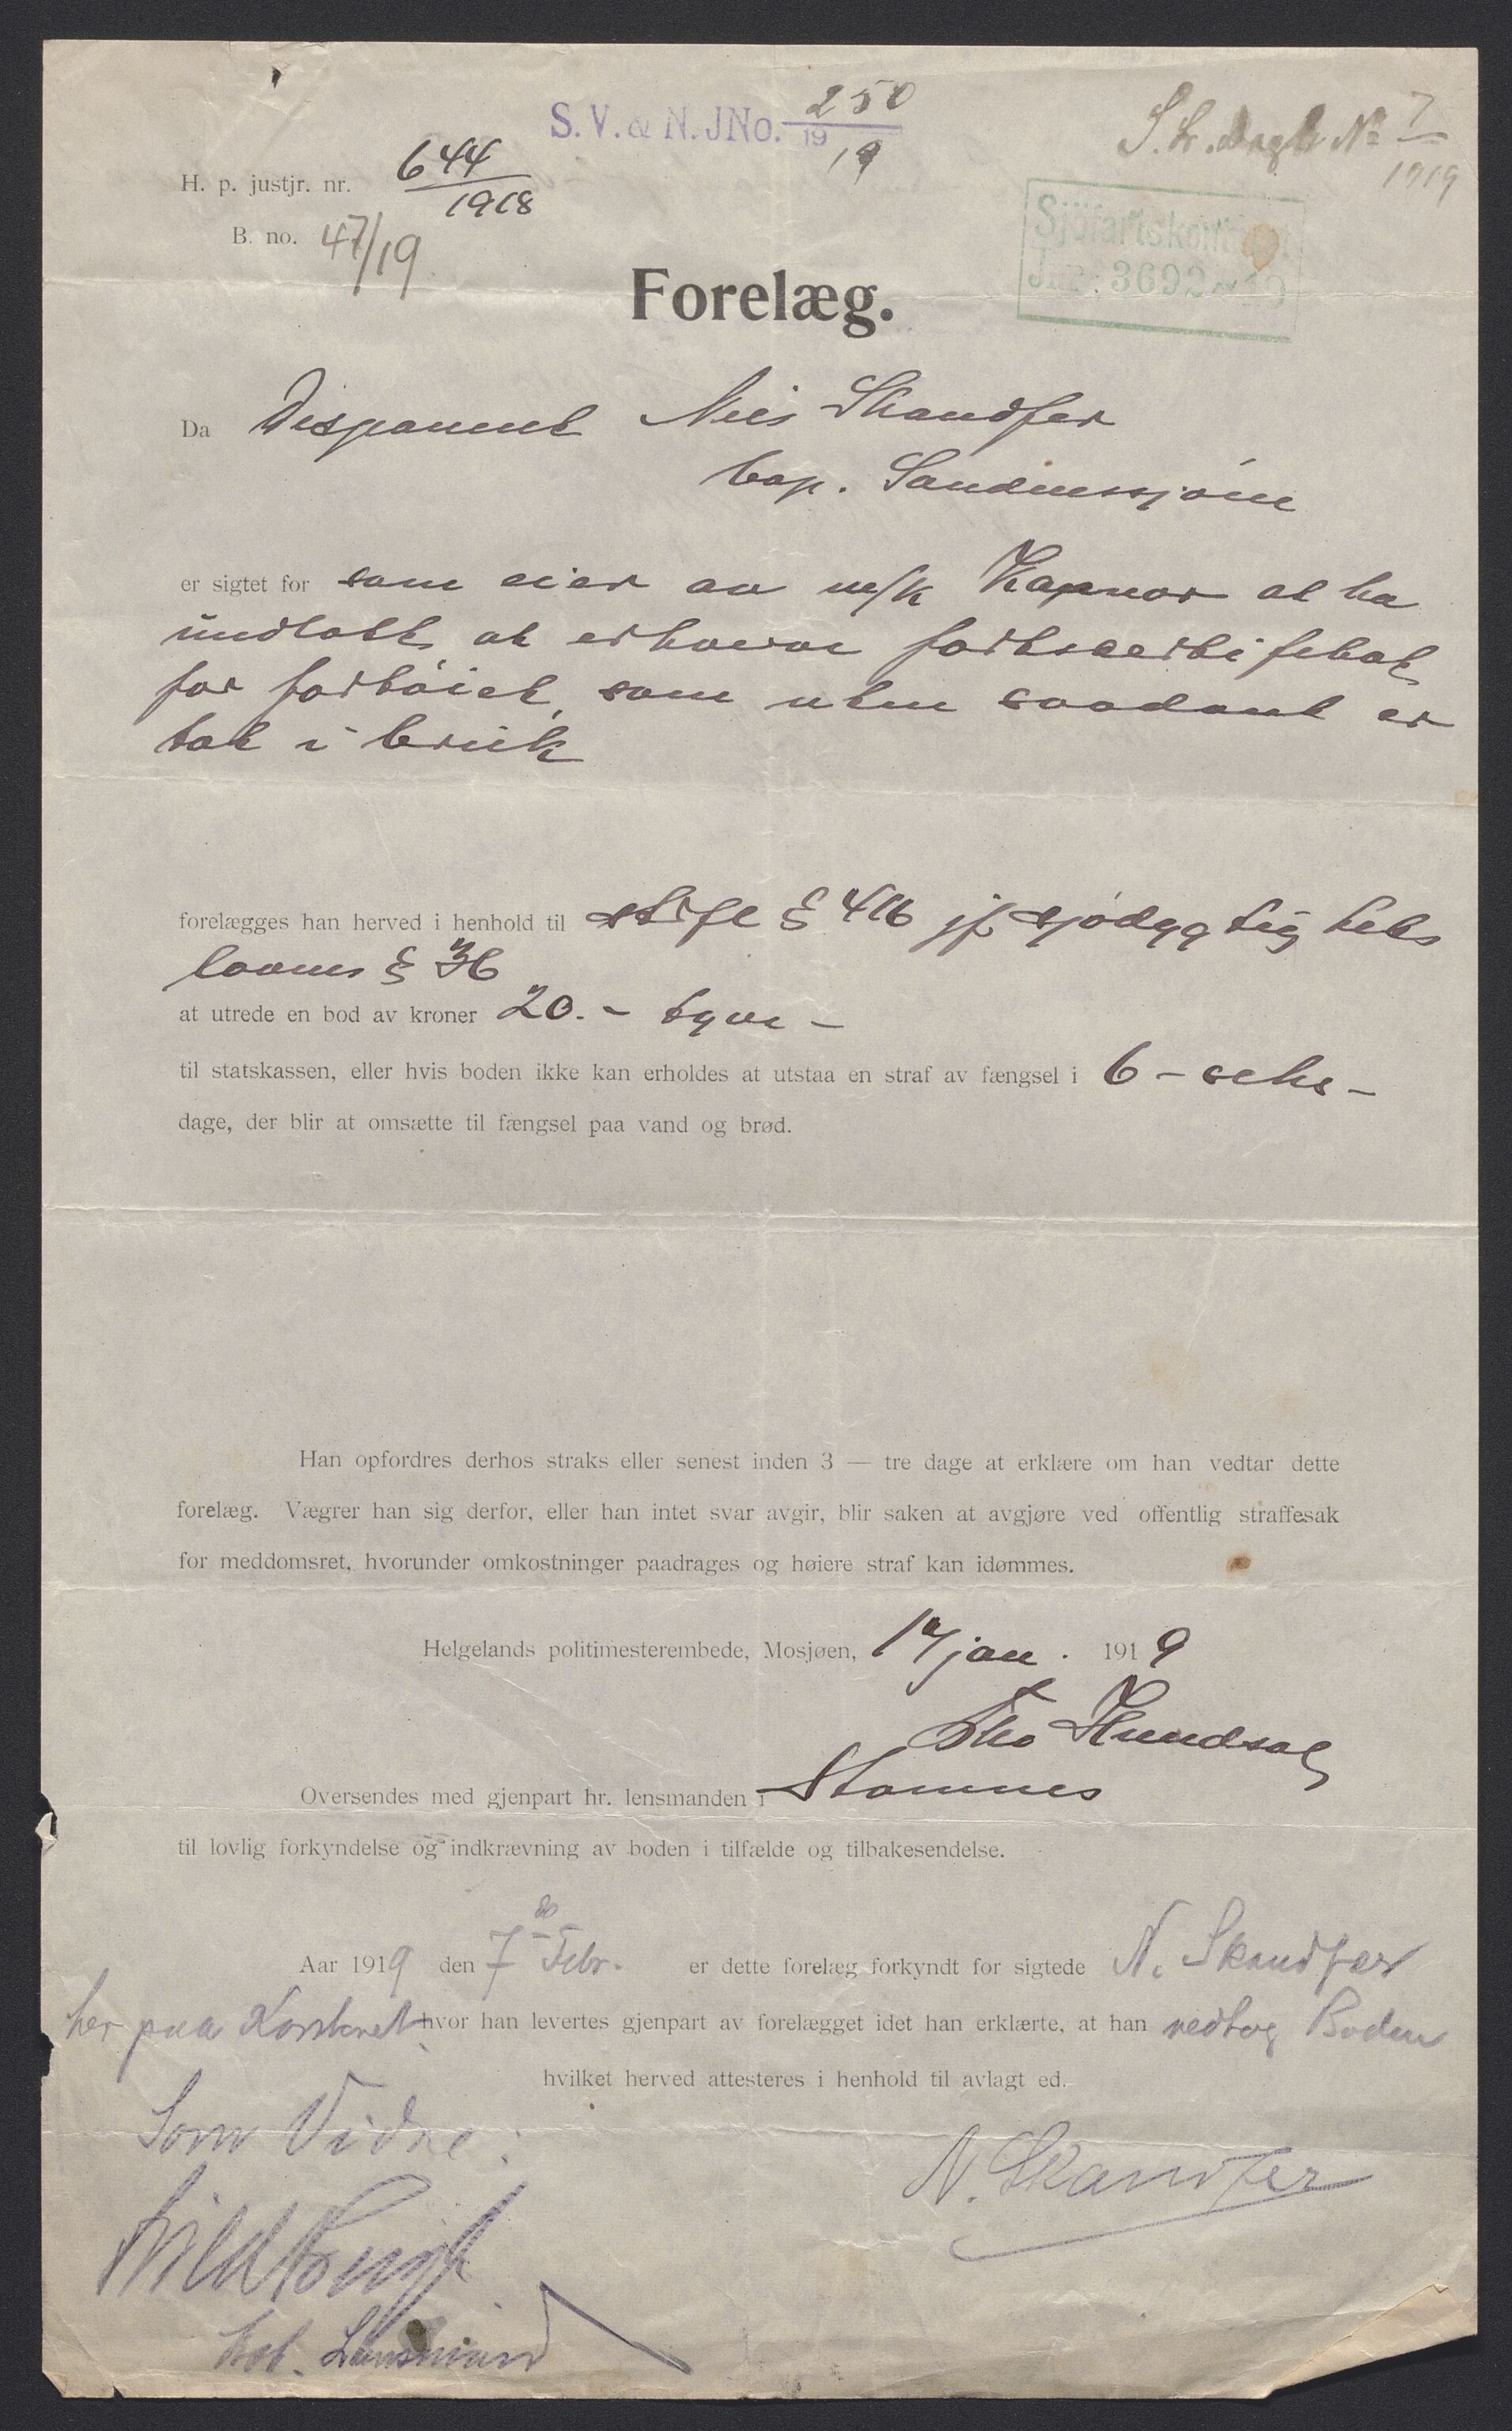 S. V. & N. JNo. 250
19 19
S. k. Dagb No 7
1919
H. p. justjr. nr. 644
1918
B. no. 47/19
Sjöfartskontoret
Jnr: 3692 - 19
Forelæg.
Da Disponent Nils Skandfer
bop. Sandnessjöen
er sigtet for som eier av m/k Kapnor at ha
undlatt at erhverve fartscertifikat
for fartöiet, som uten saadant er
tat i bruk
forelægges han herved i henhold til strfl § 416 jf sjödygtighets
lovens § 36
at utrede en bod av kroner 20.- tyve -
til statskassen, eller hvis boden ikke kan erholdes at utstaa en straf av fængsel i 6 - seks -
dage, der blir at omsætte til fængsel paa vand og brød.
Han opfordres derhos straks eller senest inden 3 — tre dage at erklære om han vedtar dette
forelæg. Vægrer han sig derfor, eller han intet svar avgir, blir saken at avgjøre ved offentlig straffesak
for meddomsret, hvorunder omkostninger paadrages og høiere straf kan idømmes.
Helgelands politimesterembede, Mosjøen, 17 jan. 1919
Oversendes med gjenpart hr. lensmanden i Stamnes
til lovlig forkyndelse og indkrævning av boden i tilfælde og tilbakesendelse.
Aar 1919 den 7 Febr. er dette forelæg forkyndt for sigtede N. Skandfer
her paa Kontoret hvor han levertes gjenpart av forelægget idet han erklærte, at han vedtog Boden
hvilket herved attesteres i henhold til avlagt ed.
Som Vidne:
N. Skandfer
Lensmand